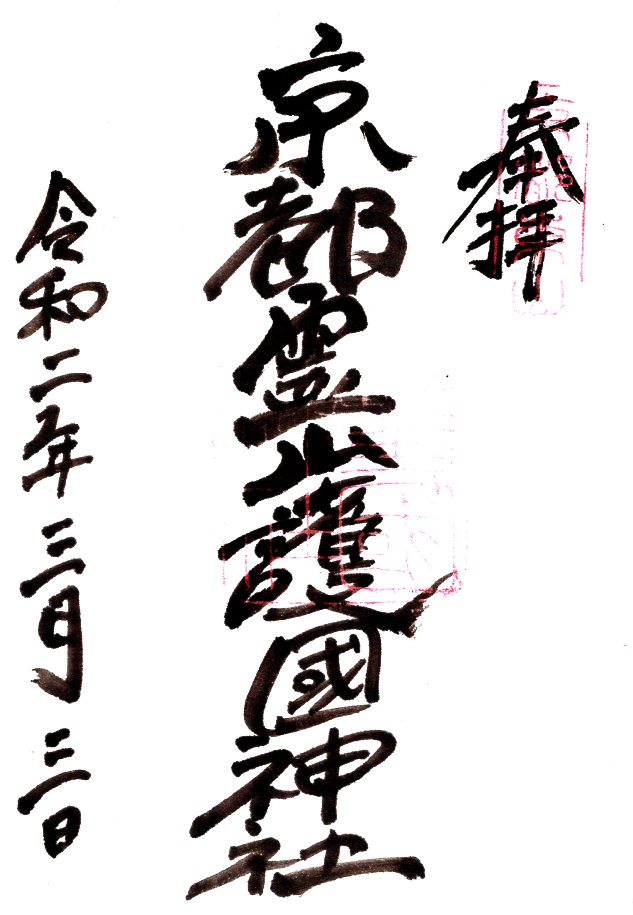 奉拝
京都霊山護國神社
令和二年三月三日